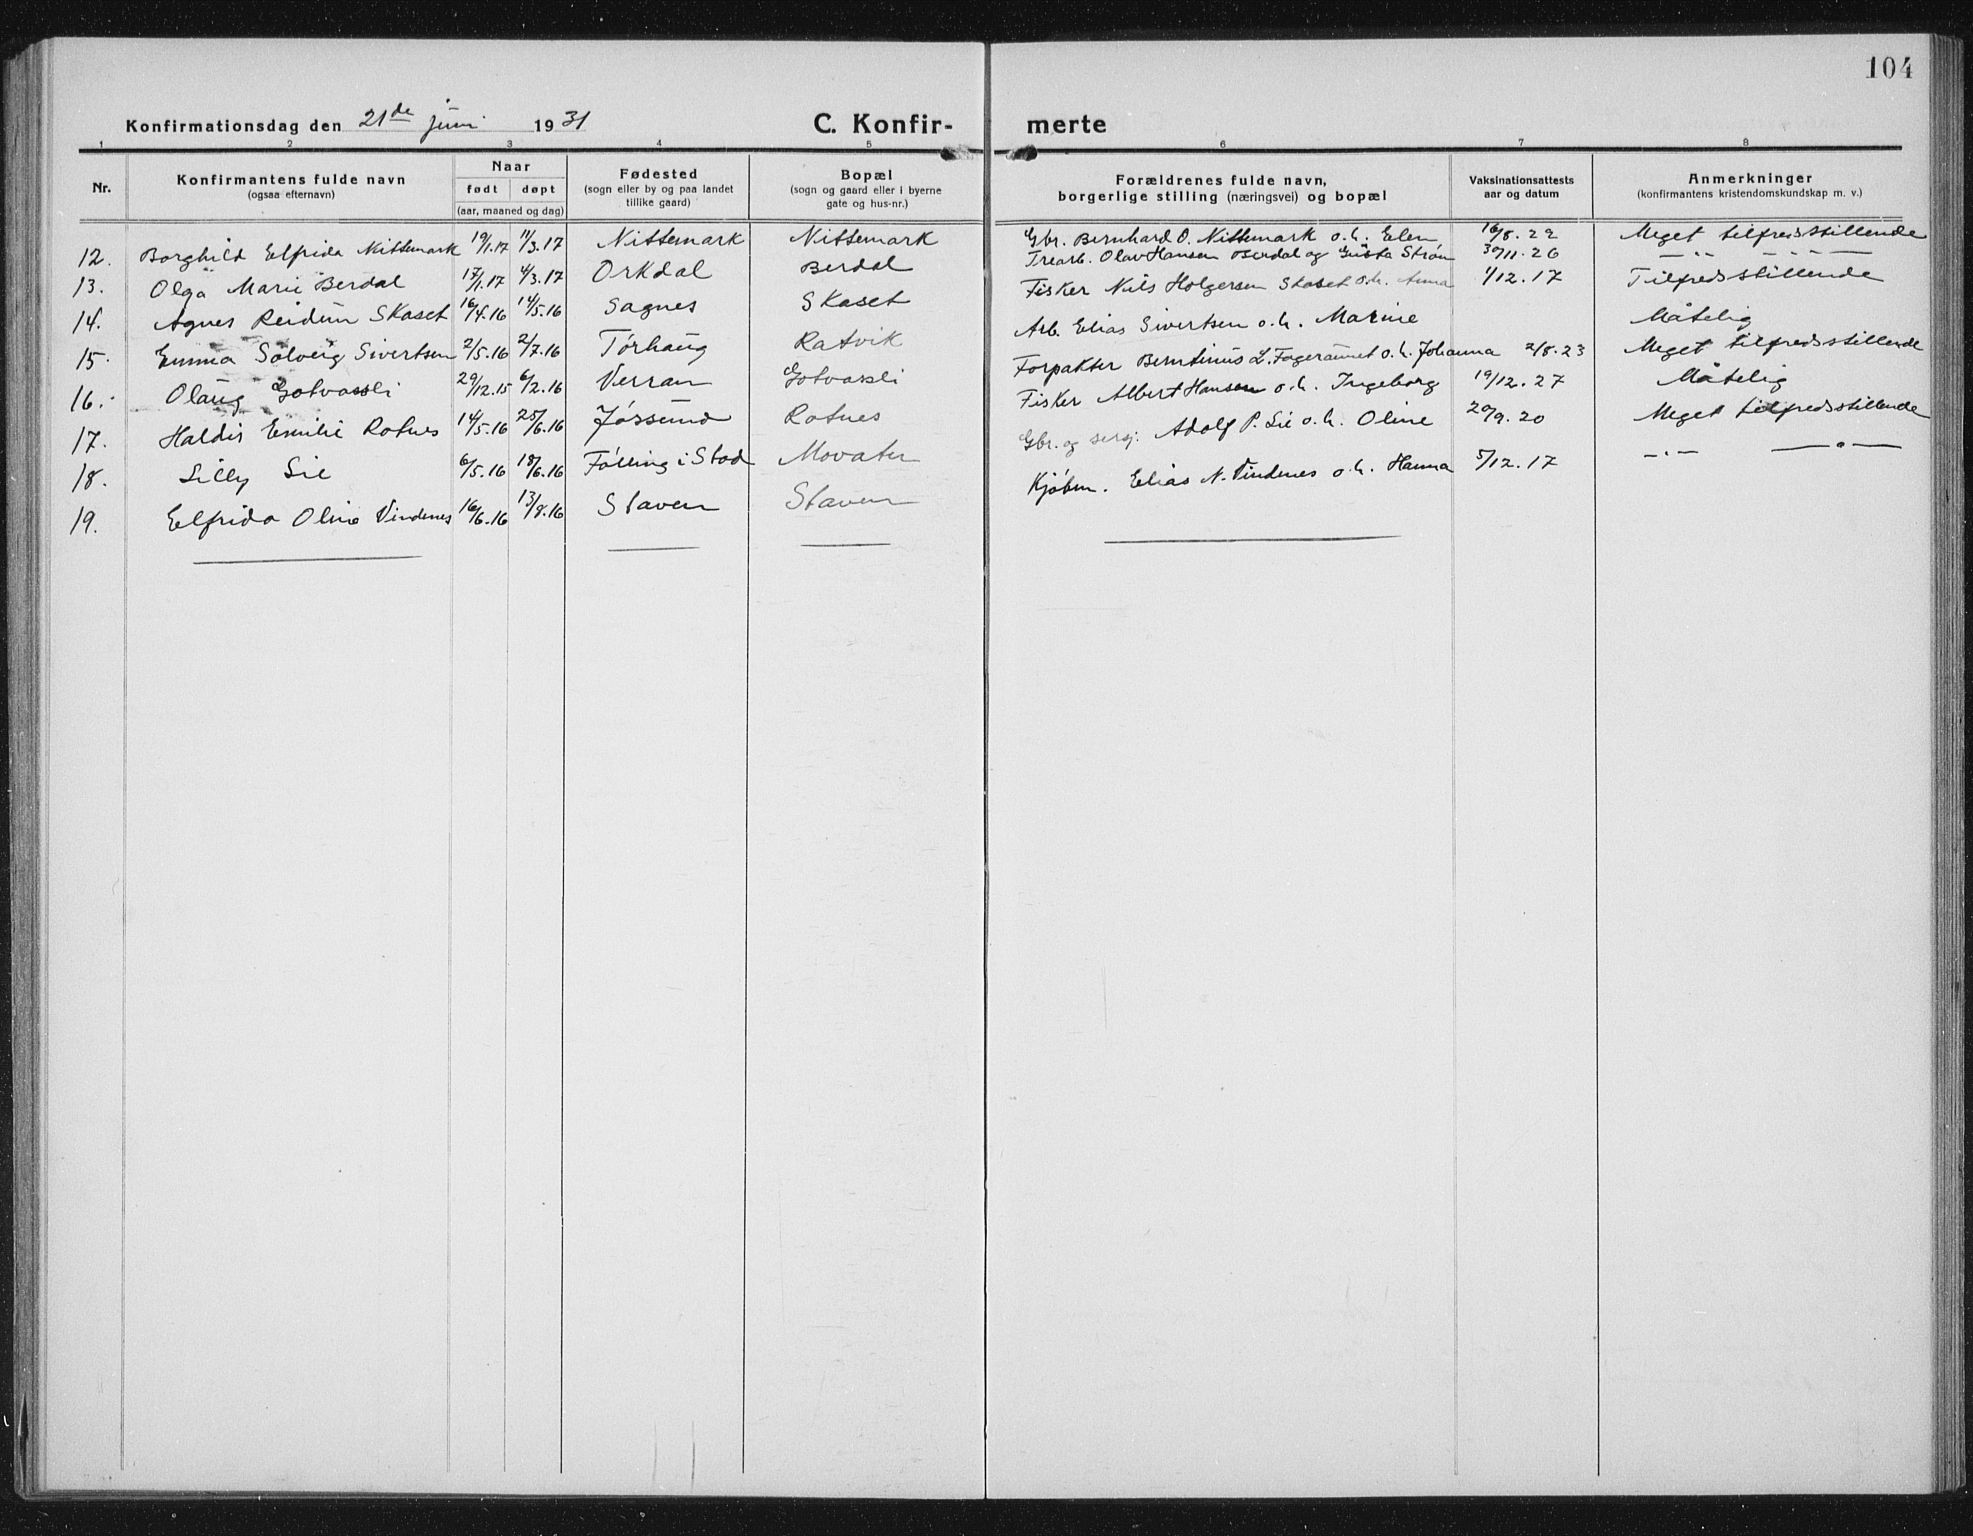 104
Konfirmationsdag den 21de juni 1931 C. Konfir- merte
1 2 3 4 5 6 7 8
Nr. Konfirmantens fulde navn (ogsaa efternavn) Naar født døpt (aar, maaned og dag) Fødested (sogn eller by og paa landet tillike gaard) Bopæl (sogn og gaard eller i byerne gate og hus-nr.) Forældrenes fulde navn, borgerlige stilling (næringsvei) og bopæl Vaksinationsattests aar og datum Anmerkninger (konfirmantens kristendomskundskap m. v.)
12. Borghild Elfrida Nittemark 19/1.17 11/3.17 Nittemark Nittemark Gbr. Bernhard O. Nittemark o.h. Elen 16/8.22 Meget tilfredsstillende
13. Olga Marie Berdal 17/1.17 4/3.17 Orkdal Berdal Trearb. Olav Hansen Berdal og Gusta Strøm 30/11.26 — " — " — — — —
14. Agnes Reidun Skaset 16/4.16 14/5.16 Sagnes Skaset Fisker Nils Holgersen Skaset o.h. Anna 1/12.17 Tilfredsstillende
15. Emma Solveig Sivertsen 2/5.16 2/7.16 Tørhaug Ratvik Arb. Elias Sivertsen o.h. Marine Måtelig
16. Olaug Gotvassli 29/12.15 6/2.16 Verran Gotvassli Forpakter Berntinus L. Fagerånnet o.h. Johanna 2/8.23 Meget tilfredsstillende
17. Haldis Emilie Rotnes 14/5.16 25/6.16 Jøssund Rotnes Fisker Albert Hansen o.h. Ingeborg 19/12.27 Måtelig
18. Lilly Lie 6/5.16 18/6.16 Følling i Stod Movatn Gbr. og sersj. Adolf P. Lie o.h. Oline 20/9.20 Meget tilfredsstillende
19. Elfrida Oline Vindenes 16/6.16 13/8.16 Staven Staven Kjøbm. Elias N. Vindenes o.h. Hanna 5/12.17 — " — — " —